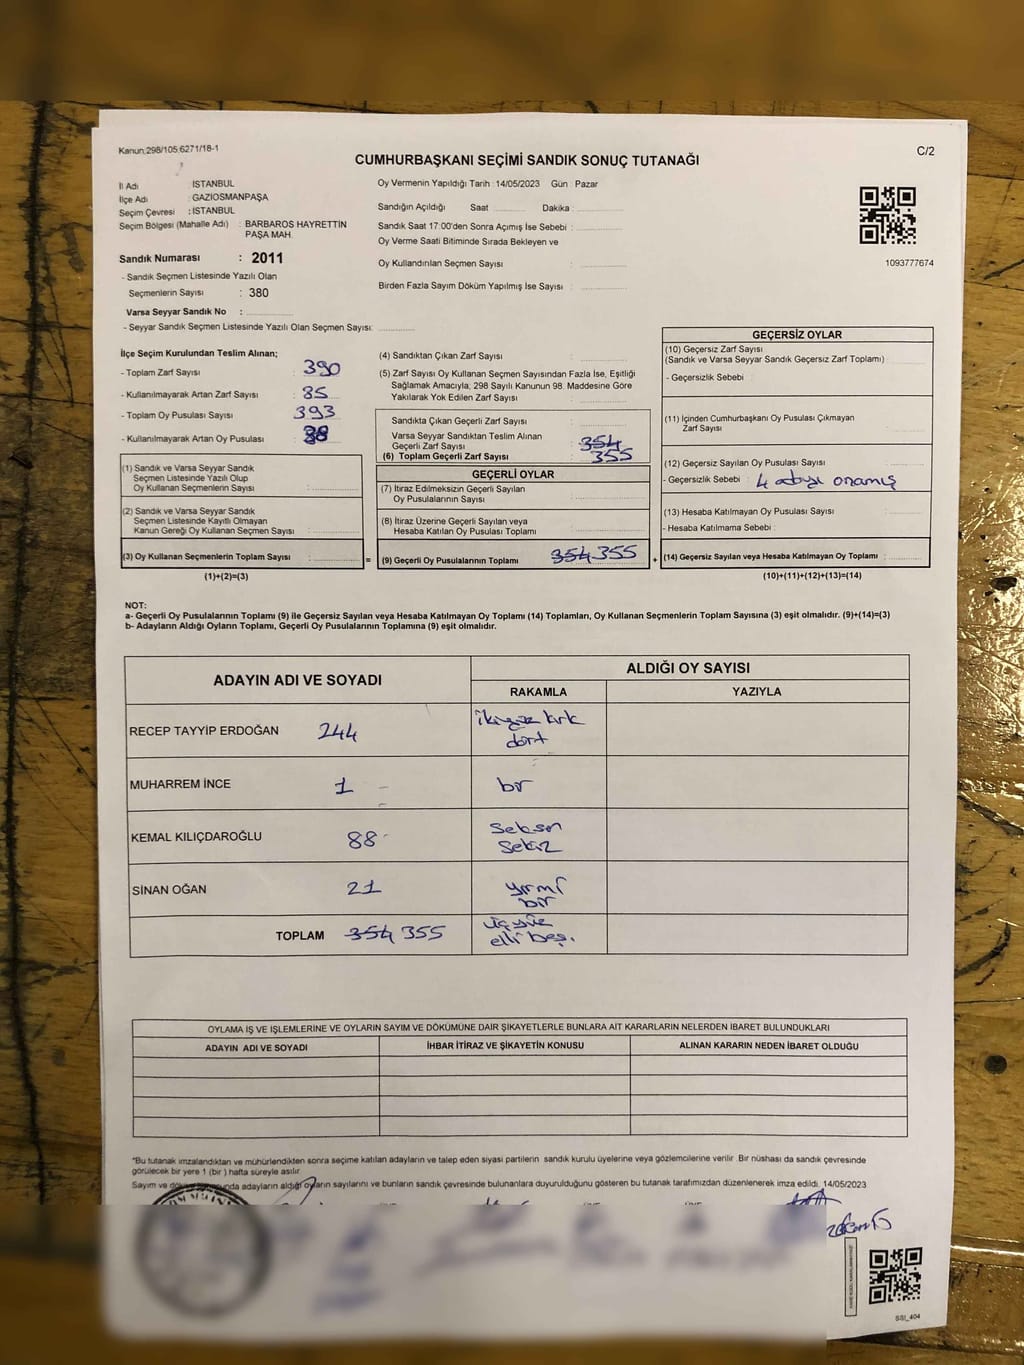 Kanun:298/105:6271/18-1
C/2
CUMHURBAŞKANI SEÇİMİ SANDIK SONUÇ TUTANAĞI
İl Adı : İSTANBUL
İlçe Adı : GAZİOSMANPAŞA
Seçim Çevresi : İSTANBUL
Seçim Bölgesi (Mahalle Adı) : BARBAROS HAYRETTİN
PAŞA MAH.
Sandık Numarası : 2011
- Sandık Seçmen Listesinde Yazılı Olan
Seçmenlerin Sayısı : 380
Varsa Seyyar Sandık No :
- Seyyar Sandık Seçmen Listesinde Yazılı Olan Seçmen Sayısı:
Oy Vermenin Yapıldığı Tarih : 14/05/2023 Gün : Pazar
Sandığın Açıldığı Saat Dakika :
Sandık Saat 17:00'den Sonra Açımış İse Sebebi :
Oy Verme Saati Bitiminde Sırada Bekleyen ve
Oy Kullandırılan Seçmen Sayısı :
Birden Fazla Sayım Döküm Yapılmış İse Sayısı :
1093777674
İlçe Seçim Kurulundan Teslim Alınan;
- Toplam Zarf Sayısı : 390
- Kullanılmayarak Artan Zarf Sayısı : 35
- Toplam Oy Pusulası Sayısı : 393
- Kullanılmayarak Artan Oy Pusulası : 38
(1) Sandık ve Varsa Seyyar Sandık
Seçmen Listesinde Yazılı Olup
Oy Kullanan Seçmenlerin Sayısı :
(2) Sandık ve Varsa Seyyar Sandık
Seçmen Listesinde Kayıtlı Olmayan
Kanun Gereği Oy Kullanan Seçmen Sayısı :
(3) Oy Kullanan Seçmenlerin Toplam Sayısı :
(1)+(2)=(3)
=
(4) Sandıktan Çıkan Zarf Sayısı :
(5) Zarf Sayısı Oy Kullanan Seçmen Sayısından Fazla İse, Eşitliği
Sağlamak Amacıyla, 298 Sayılı Kanunun 98. Maddesine Göre
Yakılarak Yok Edilen Zarf Sayısı :
Sandıkta Çıkan Geçerli Zarf Sayısı :
Varsa Seyyar Sandıktan Teslim Alınan
Geçerli Zarf Sayısı : 354
(6) Toplam Geçerli Zarf Sayısı : 355
GEÇERLİ OYLAR
(7) İtiraz Edilmeksizin Geçerli Sayılan
Oy Pusulalarının Sayısı :
(8) İtiraz Üzerine Geçerli Sayılan veya
Hesaba Katılan Oy Pusulaları Toplamı :
(9) Geçerli Oy Pusulalarının Toplamı : 354 355
+
GEÇERSİZ OYLAR
(10) Geçersiz Zarf Sayısı
(Sandık ve Varsa Seyyar Sandık Geçersiz Zarf Toplamı) :
- Geçersizlik Sebebi :
(11) İçinden Cumhurbaşkanı Oy Pusulası Çıkmayan
Zarf Sayısı :
(12) Geçersiz Sayılan Oy Pusulası Sayısı :
- Geçersizlik Sebebi : 4 adayı onamış
(13) Hesaba Katılmayan Oy Pusulası Sayısı :
- Hesaba Katılmama Sebebi :
(14) Geçersiz Sayılan veya Hesaba Katılmayan Oy Toplamı :
(10)+(11)+(12)+(13)=(14)
NOT:
a- Geçerli Oy Pusulalarının Toplamı (9) ile Geçersiz Sayılan veya Hesaba Katılmayan Oy Toplamı (14) Toplamları, Oy Kullanan Seçmenlerin Toplam Sayısına (3) eşit olmalıdır. (9)+(14)=(3)
b- Adayların Aldığı Oyların Toplamı, Geçerli Oy Pusulalarının Toplamına (9) eşit olmalıdır.
ADAYIN ADI VE SOYADI
ALDIĞI OY SAYISI
RAKAMLA YAZIYLA
RECEP TAYYİP ERDOĞAN 244 ikiyüz kırk
dört
MUHARREM İNCE 1 bir
KEMAL KILIÇDAROĞLU 88 Seksen
Sekiz
SİNAN OĞAN 21 yirmi
bir
TOPLAM 354 355 üçyüz
elli beş.
OYLAMA İŞ VE İŞLEMLERİNE VE OYLARIN SAYIM VE DÖKÜMÜNE DAİR ŞİKAYETLERLE BUNLARA AİT KARARLARIN NELERDEN İBARET BULUNDUKLARI
ADAYIN ADI VE SOYADI İHBAR İTİRAZ VE ŞİKAYETİN KONUSU ALINAN KARARIN NEDEN İBARET OLDUĞU
*Bu tutanak imzalandıktan ve mühürlendikten sonra seçime katılan adayların ve talep eden siyasi partilerin sandık kurulu üyelerine veya gözlemcilerine verilir. Bir nüshası da sandık çevresinde
görülecek bir yere 1 (bir ) hafta süreyle asılır.
Sayım ve adayların aldığı oyların sayılarını ve bunların sandık çevresinde bulunanlara duyurulduğunu gösteren bu tutanak tarafımızdan düzenlenerek imza edildi. 14/05/2023
SSI_404